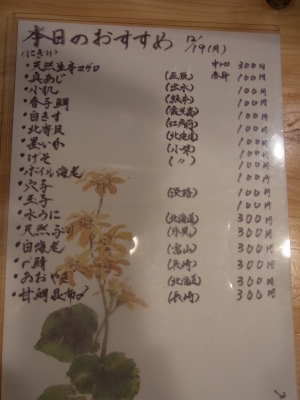 本日のおすすめ 12/19(月)
(にぎり)
・天然生本マグロ 中トロ 300円
・真あじ (三阪) 赤身 100円
・小肌 (出水) 100円
・春子鯛 (鹿児島) 100円
・白きす (江戸前) 100円
・北寄貝 (北海道) 100円
・墨いか (小柴) 100円
・げそ (〃) 100円
・ボイル海老 100円
・穴子 100円
・玉子 100円
・水うに (北海道) 300円
・天然ぶり 300円
・白海老 (富山) 300円
・〆鯖 (長崎) 300円
・あおやぎ (北海道) 300円
・甘鯛昆布〆 (長崎) 300円